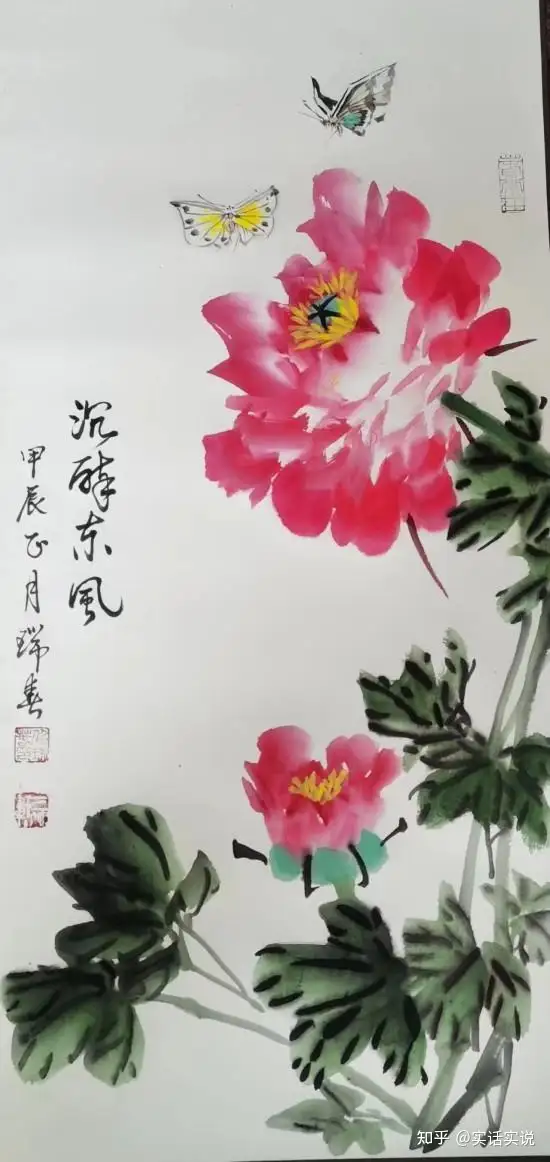 沉醉东风
甲辰正月瑞春
知乎 @实话实说